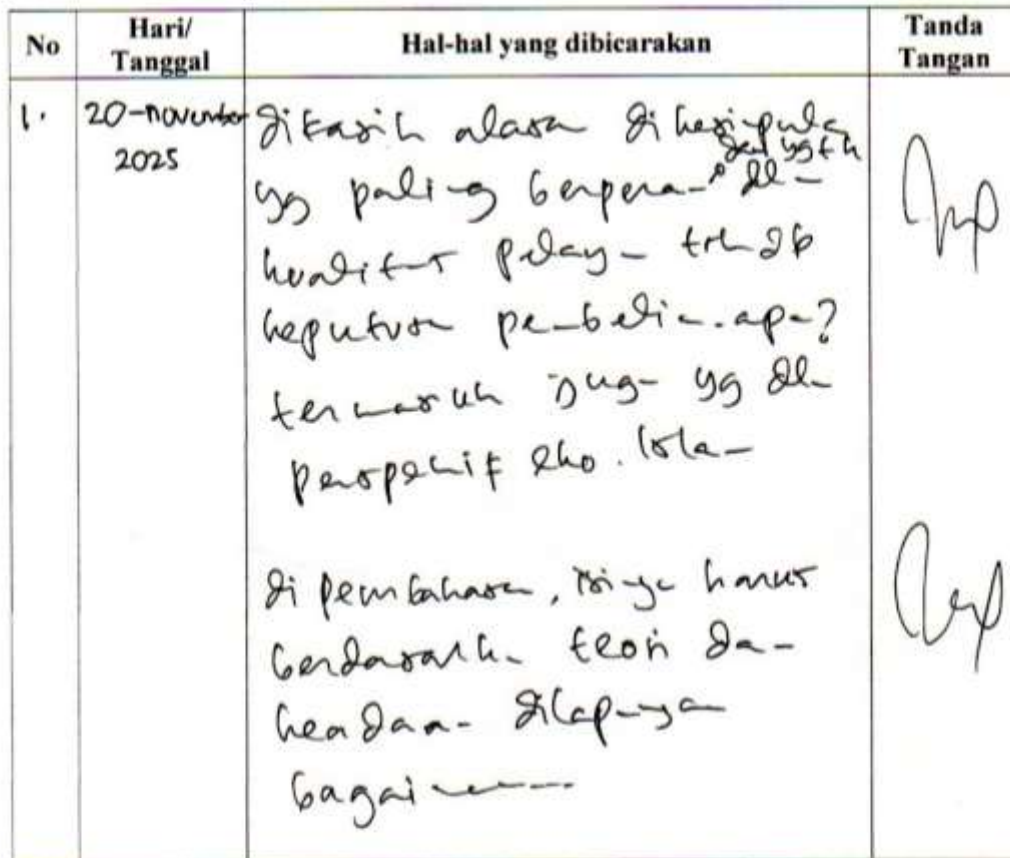 No
Hari/
Tanggal
Hal-hal yang dibicarakan
Tanda
Tangan
1.
20-november
2025
dikasih alasan di kesimpulan
yg paling berperan dlm
kualitas pelay- trhdp
keputusan pembelian. apa?
termasuk juga yg dlm
perspektif eko. Islam
di pembahasan, isinya harus
berdasarkan teori dan
keadaan dilapangan
bagaimana